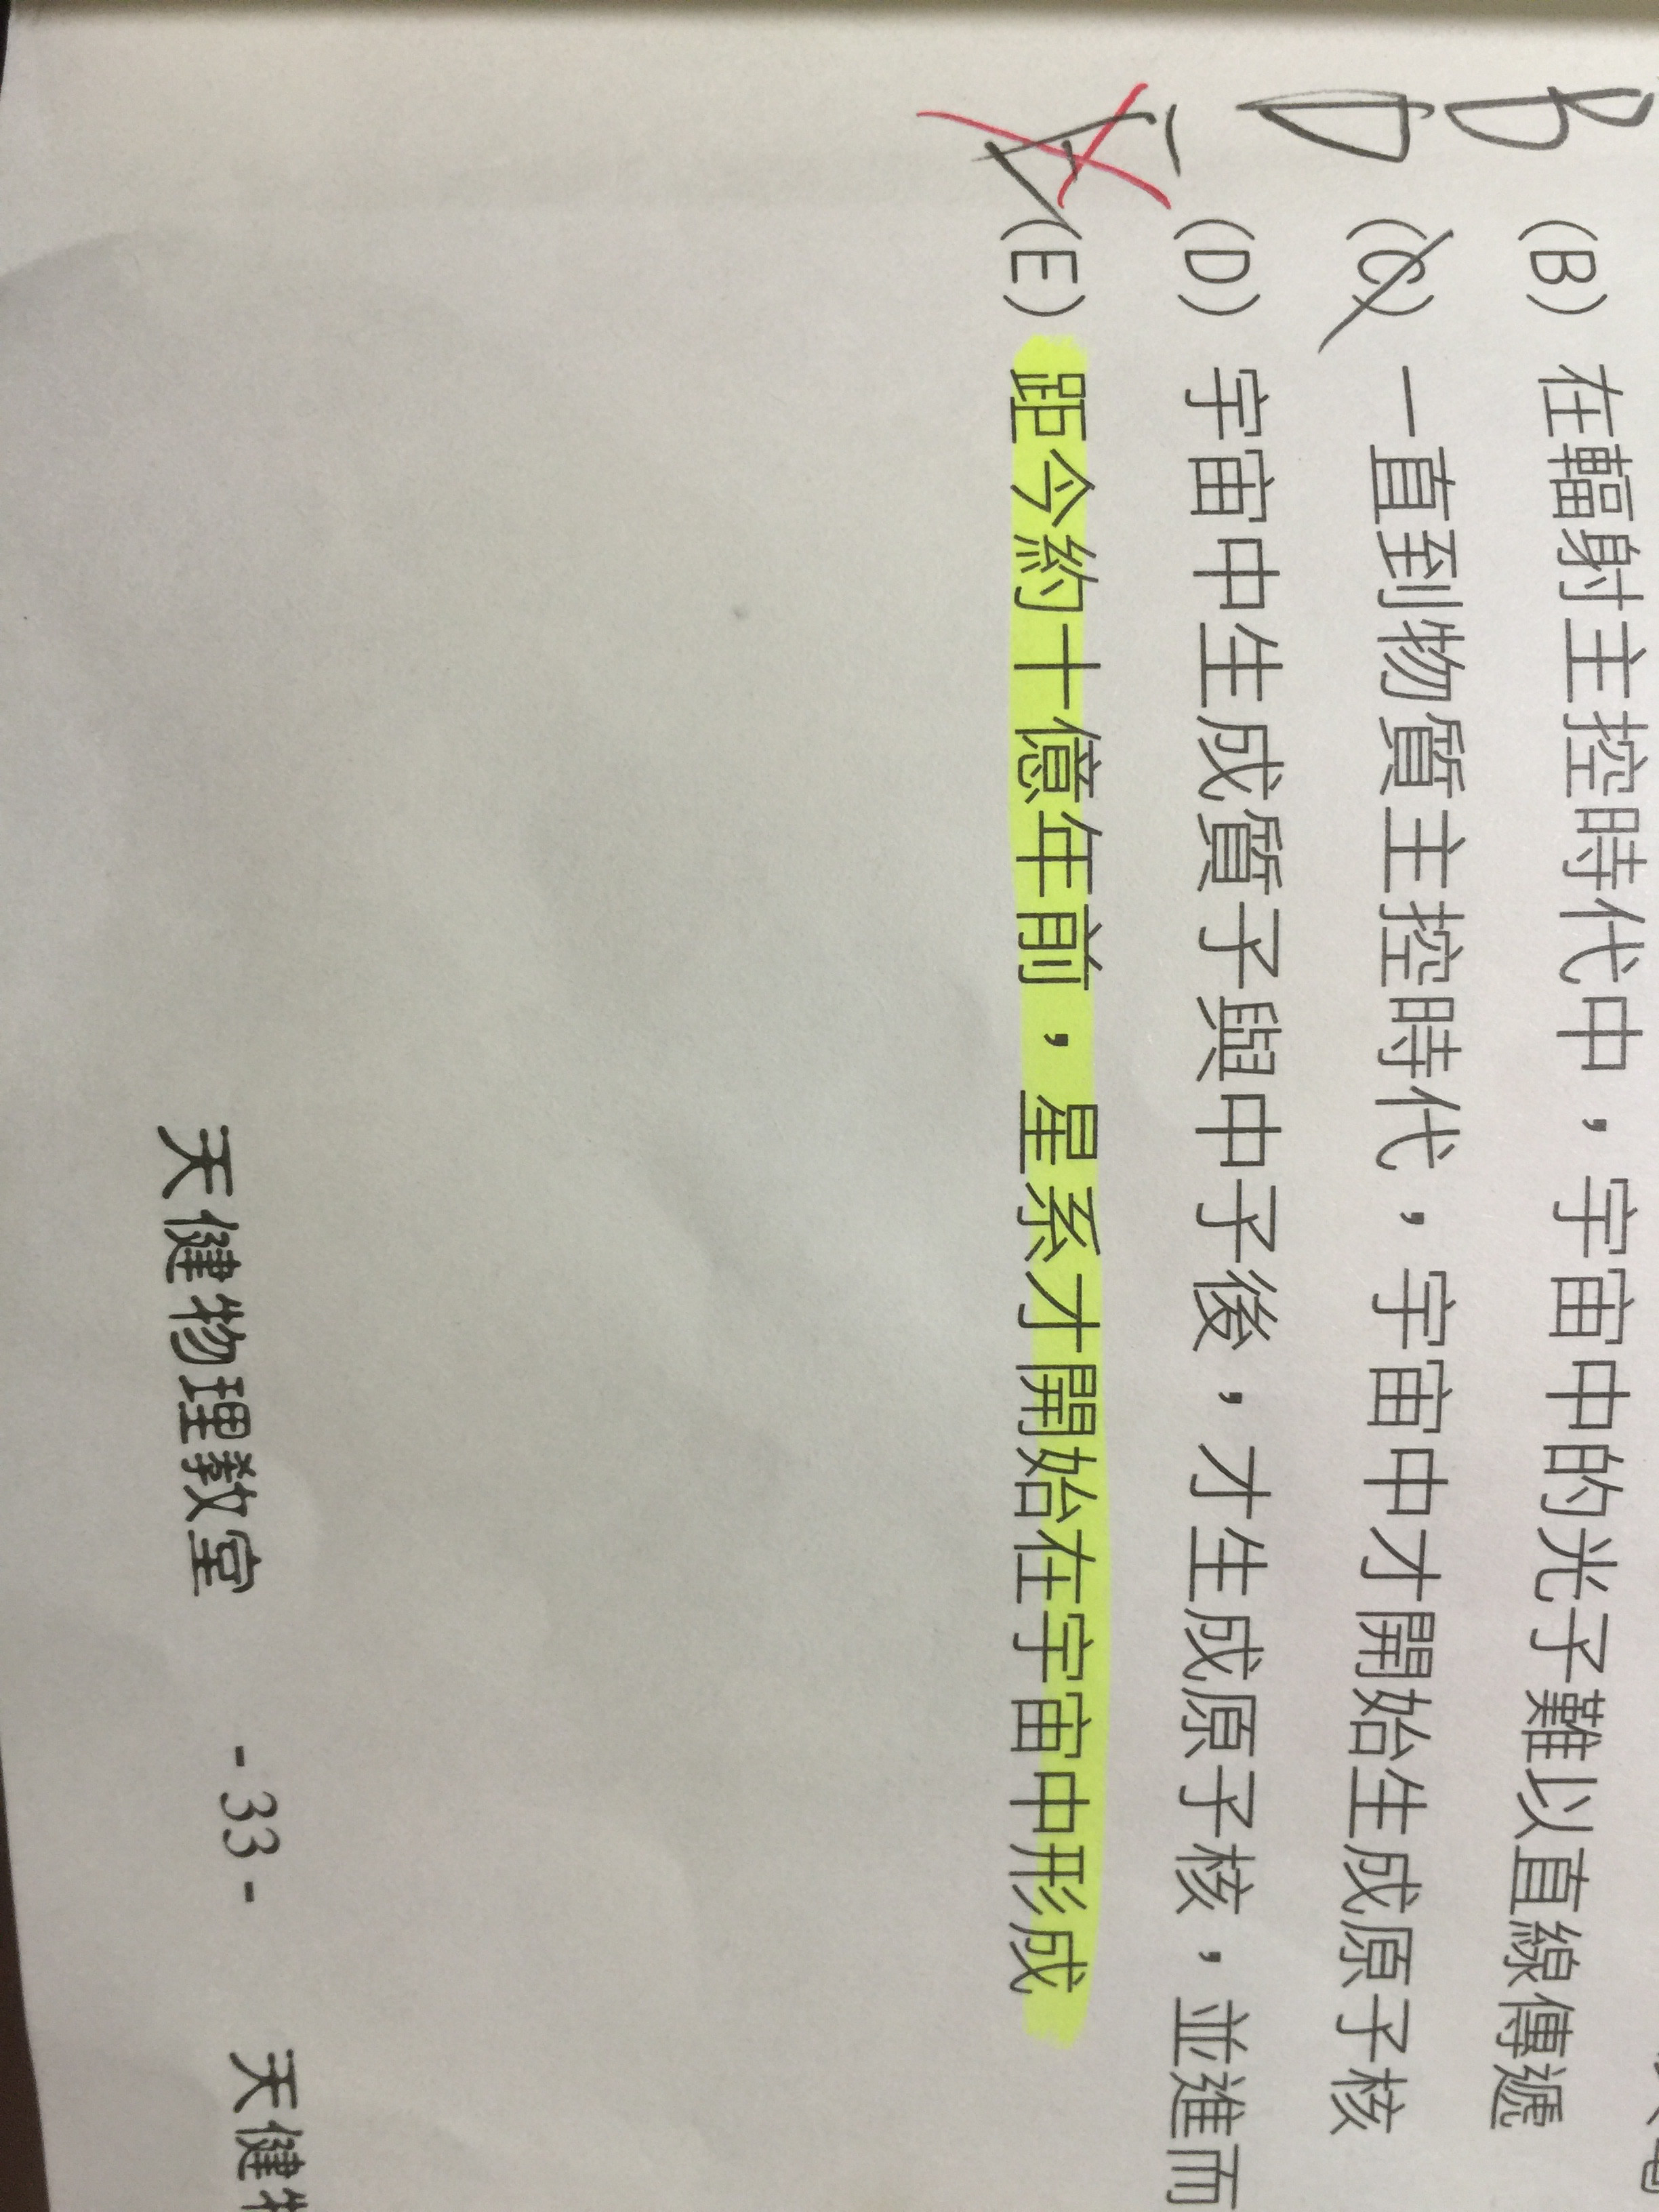 B (B) 在輻射主控時代中，宇宙中的光子難以直線傳遞
D (C) 一直到物質主控時代，宇宙中才開始生成原子核
(D) 宇宙中生成質子與中子後，才生成原子核，並進而
(E) 距今約十億年前，星系才開始在宇宙中形成
天健物理教室 -33- 天健物